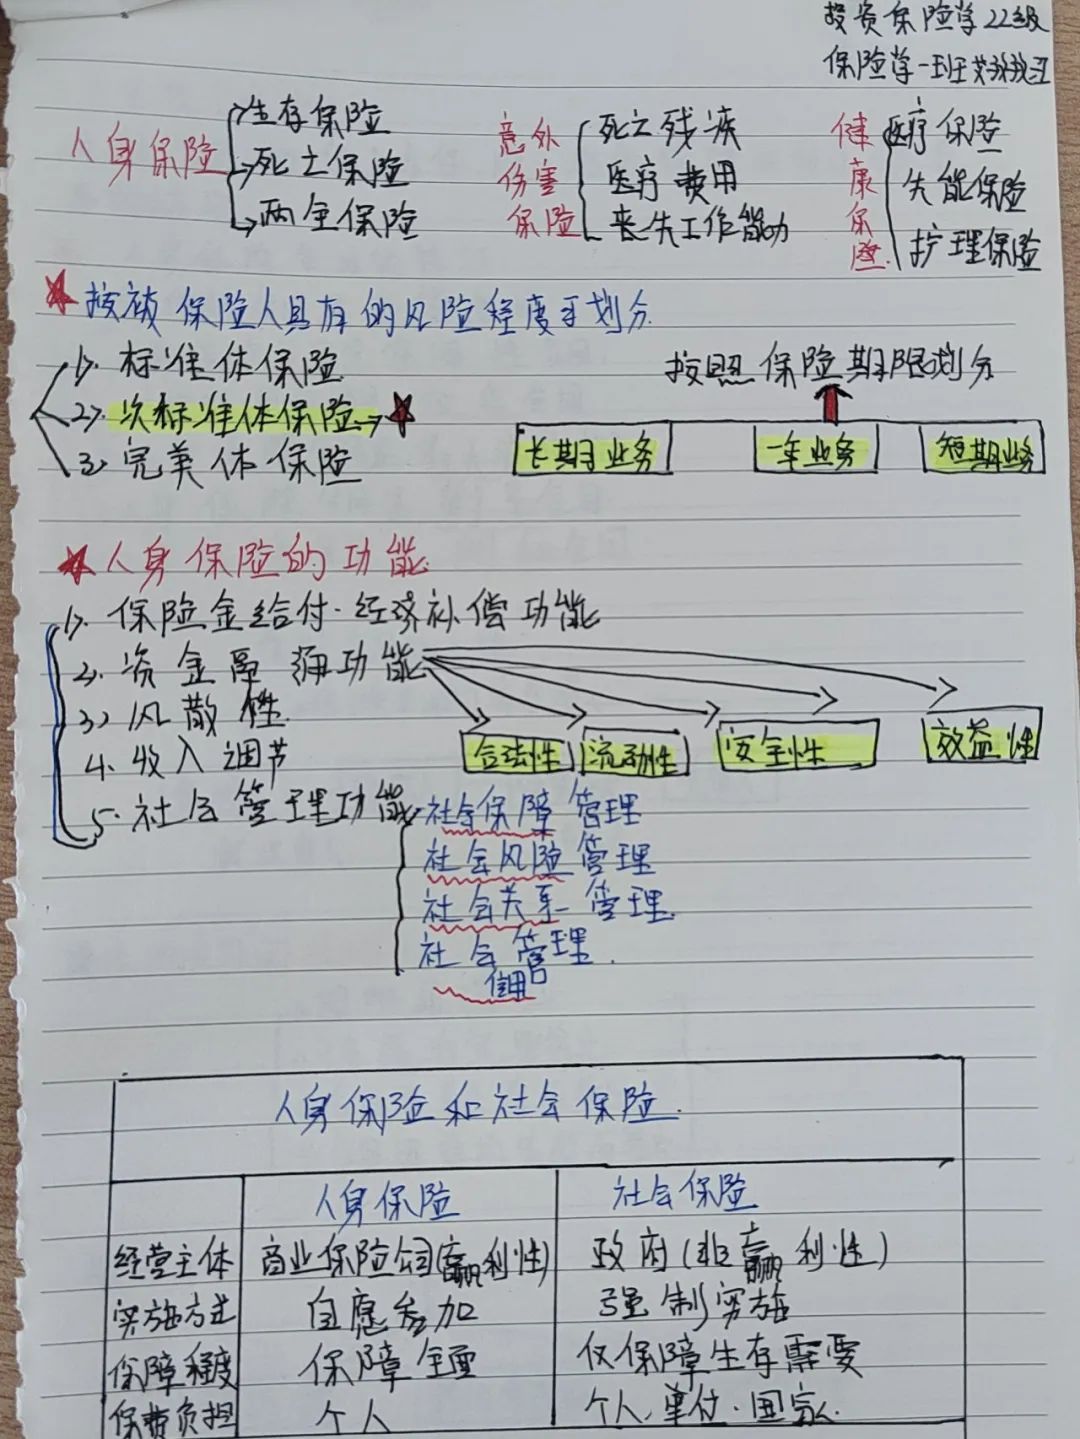 投资保险学22级
保险学一班
人身保险
生存保险
死亡保险
两全保险
意外
伤害
保险
死亡残疾
医疗费用
丧失工作能力
健
康
保
险
医疗保险
失能保险
护理保险
按被保险人具有的风险程度划分
1). 标准体保险
2). 次标准体保险
3. 完美体保险
按照保险期限划分
长期业务
一年业务
短期业务
人身保险的功能
1). 保险金给付·经济补偿功能
2). 资金融通功能
3) 风散性
4. 收入调节
5. 社会管理功能
合法性
流动性
安全性
效益性
社会保障管理
社会风险管理
社会关系管理.
社会管理.
信用
人身保险和社会保险.
人身保险
社会保险
经营主体
商业保险公司(赢利性)
政府(非赢利性)
实施方式
自愿参加
强制实施
保障程度
保障全面
仅保障生存需要
保费负担
个人
个人、单位·国家.